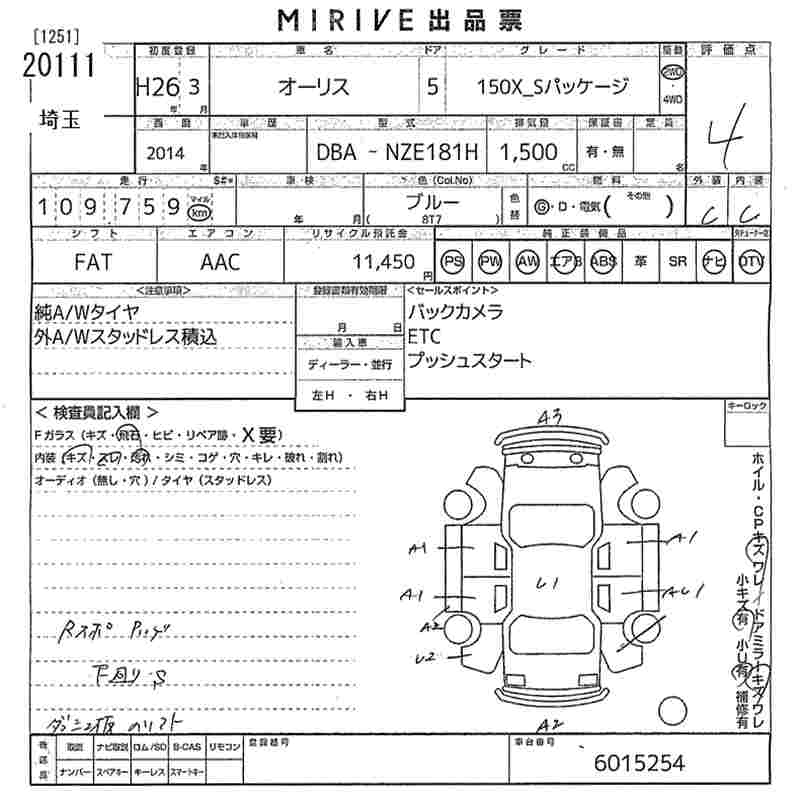 MIRIVE 出品票
[1251]
20111
埼玉
初度登録 車名 ドア グレード 駆動 評価点
H26 3 オーリス 5 150X_Sパッケージ 2WD
年 月 ・
4WD
4
西暦 車歴 型式 排気量 保証書 定員
2014 年 DBA - NZE181H 1,500 CC 有・無 名
走行 S#* 車検 色(Col.No) 燃料 外装 内装
109759 マイル km 年 月 ブルー ( 8T7 ) 色替 G・D・電気( その他 ) C C
シフト エアコン リサイクル預託金 純正装備品
FAT AAC 11,450 円 PS PW AW エアB ABS 革 SR ナビ DTV
<注意事項> 登録書類有効期限 <セールスポイント>
純A/Wタイヤ
外A/Wスタッドレス積込
月 日
輸入車
ディーラー・並行
左H ・ 右H
バックカメラ
ETC
プッシュスタート
< 検査員記入欄 >
Fガラス(キズ・飛石・ヒビ・リペア跡・X要)
内装(キズ・スレ・汚れ・シミ・コゲ・穴・キレ・破れ・割れ)
オーディオ(無し・穴)/タイヤ(スタッドレス)
キーロック
A3
A1 A1
U1
A1 AU1
A2
U2
A2
ホイル・CPキズワレ/ドアミラーキズワレ
小キズ有 小U有 補修有
下回りS
後部品 取説 ナビ取説 ロム/SD B-CAS リモコン
ナンバー スペアキー キーレス スマートキー
登録番号
車台番号
6015254